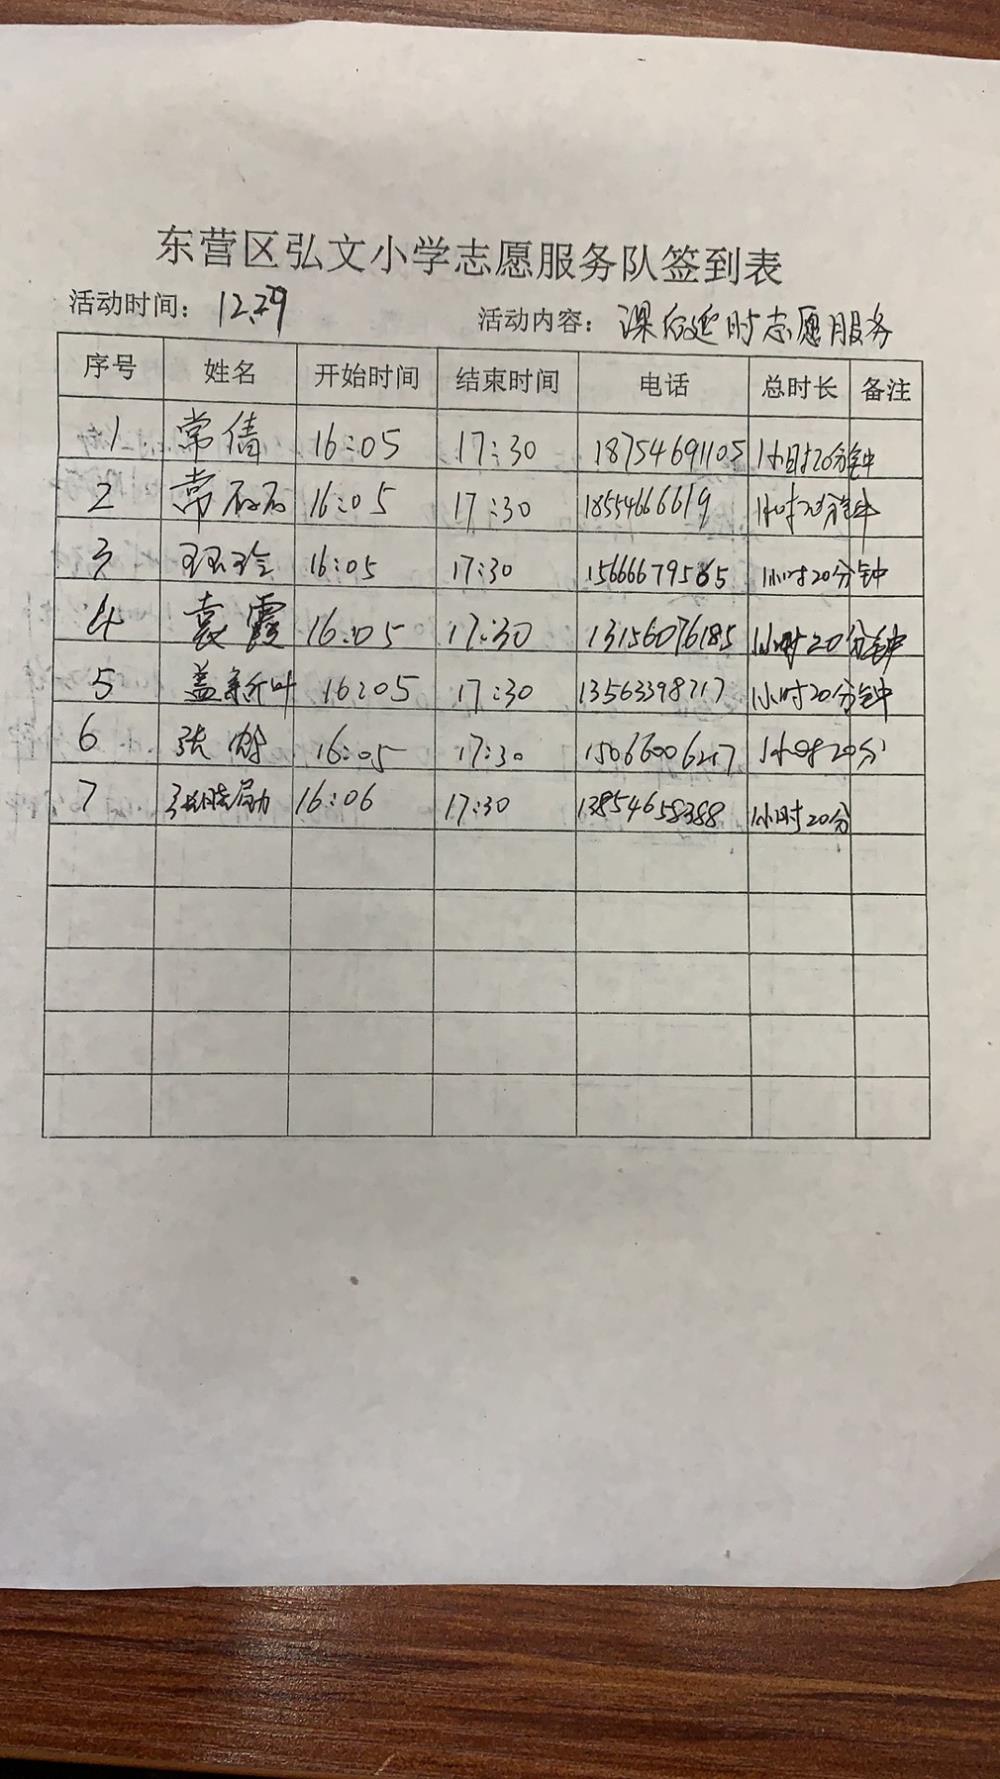 东营区弘文小学志愿服务队签到表
活动时间： 12.29 活动内容： 课后延时志愿服务
序号 姓名 开始时间 结束时间 电话 总时长 备注
1 常倩 16:05 17:30 18754691105 1小时20分钟
2 常石石 16:05 17:30 18554666619 1小时20分钟
3 16:05 17:30 15666679565 1小时20分钟
4 袁霞 16:05 17:30 13156076185 1小时20分钟
5 盖新叶 16:05 17:30 13563398717 1小时20分钟
6 张 16:05 17:30 15066006217 1小时20分
7 16:06 17:30 13854658388 1小时20分